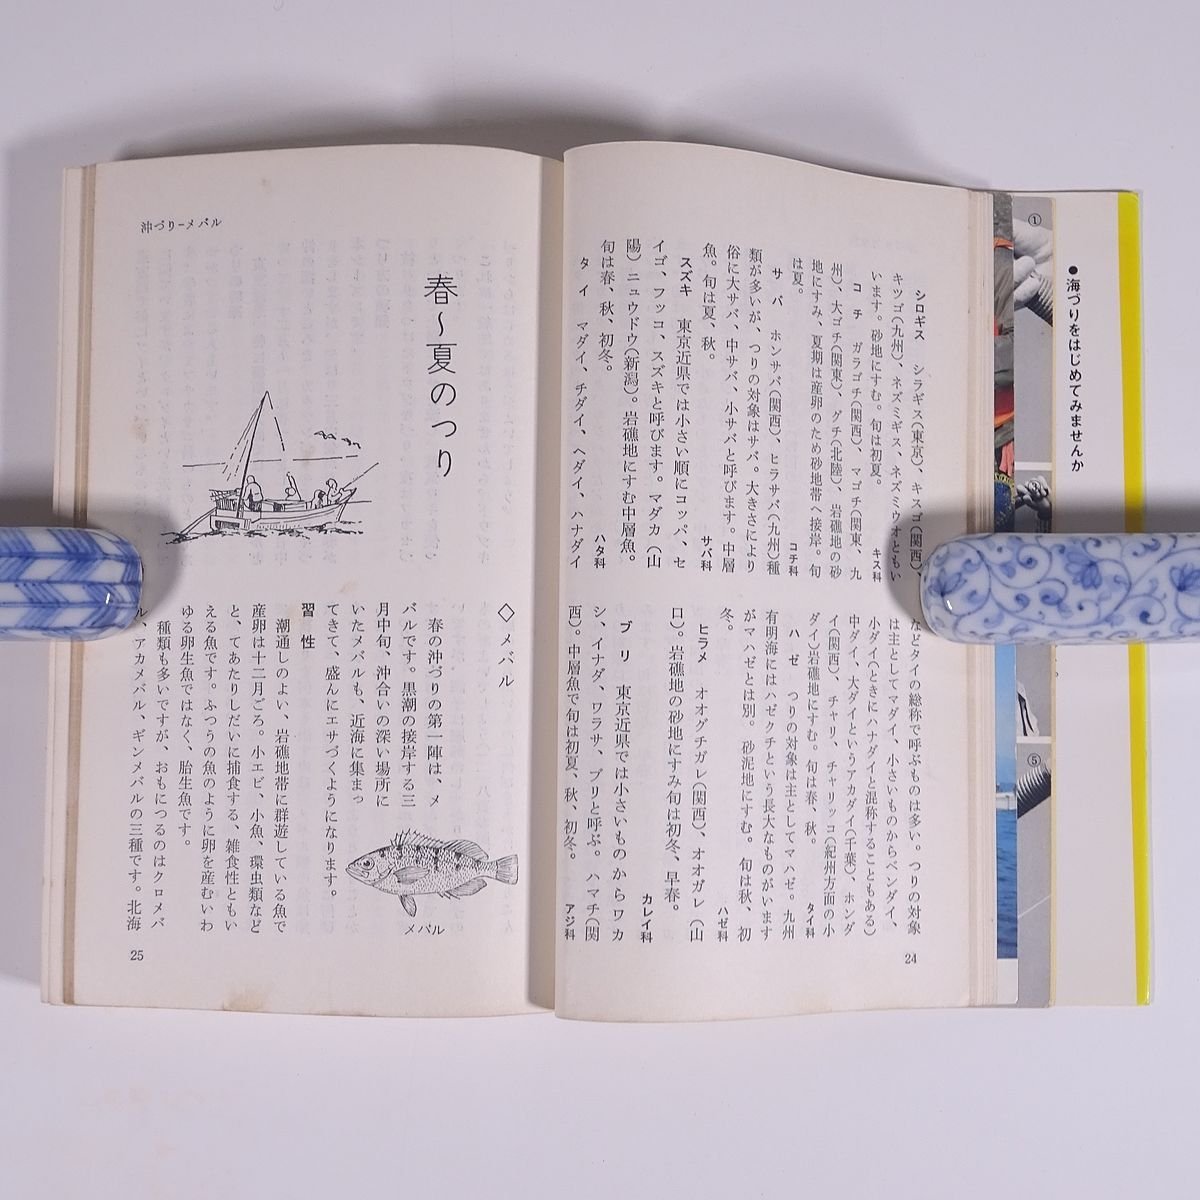 ●海づりをはじめてみませんか
①
⑤
シロギス　シラギス(東京)、キスゴ(関西)、
キツゴ(九州)、ネズミギス、ネズミウオともい
います。砂地にすむ。旬は初夏。　キス科
コチ　ガラゴチ(関西)、マゴチ(関東、九
州)、大ゴチ(関東)、グチ(北陸)、岩礁地の砂
地にすみ、夏期は産卵のため砂地帯へ接岸。旬
は夏。　コチ科
サバ　ホンサバ(関西)、ヒラサバ(九州)種
類が多いが、つりの対象はサバ。大きさにより
俗に大サバ、中サバ、小サバと呼びます。中層
魚。旬は夏、秋。　サバ科
スズキ　東京近県では小さい順にコッパ、セ
イゴ、フッコ、スズキと呼びます。マダカ(山
陽)ニュウドウ(新潟)。岩礁地にすむ中層魚。
旬は春、秋、初冬。　ハタ科
タイ　マダイ、チダイ、ヘダイ、ハナダイ
などタイの総称で呼ぶものは多い。つりの対象
は主としてマダイ、小さいものからベンダイ、
小ダイ(ときにハナダイと混称することもある)
中ダイ、大ダイというアカダイ(千葉)、ホンダ
イ(関西)、チャリ、チャリッコ(紀州方面の小
ダイ)岩礁地にすむ。旬は春、秋。　タイ科
ハゼ　つりの対象は主としてマハゼ。九州
有明海にはハゼクチという長大なものがいます
がマハゼとは別。砂泥地にすむ。旬は秋、初
冬。　ハゼ科
ヒラメ　オオグチガレ(関西)、オオガレ(山
口)。岩礁地の砂地にすみ旬は初冬、早春。
カレイ科
ブリ　東京近県では小さいものからワカ
シ、イナダ、ワラサ、ブリと呼ぶ。ハマチ(関
西)。中層魚で旬は初夏、秋、初冬。　アジ科
24
沖づり-メバル
春〜夏のつり
◇メバル
春の沖づりの第一陣は、メ
バルです。黒潮の接岸する三
月中旬、沖合いの深い場所に
いたメバルも、近海に集まっ
てきて、盛んにエサづくようになります。
習性
潮通しのよい、岩礁地帯に群遊している魚で
産卵は十二月ごろ。小エビ、小魚、環虫類など
と、てあたりしだいに捕食する、雑食性ともい
える魚です。ふつうの魚のように卵を産むいわ
ゆる卵生魚ではなく、胎生魚です。
種類も多いですが、おもにつるのはクロメバ
ル、アカメバル、ギンメバルの三種です。北海
メバル
25